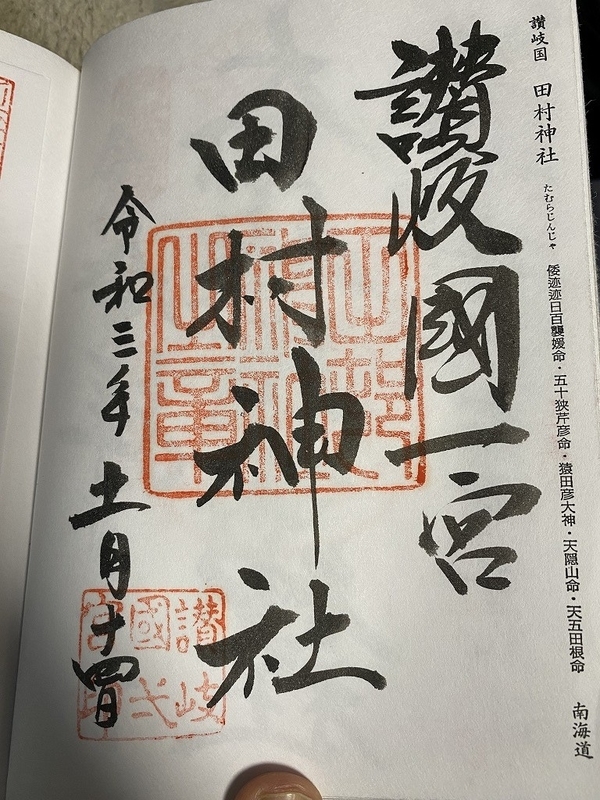 讃岐国 田村神社 たむらじんじゃ 倭迹迹日百襲媛命・五十狭芹彦命・猿田彦大神・天隠山命・天五田根命 南海道
讃岐國一宮
田村神社
令和三年十一月十四日
田村神社之章
讃岐國弌宮印